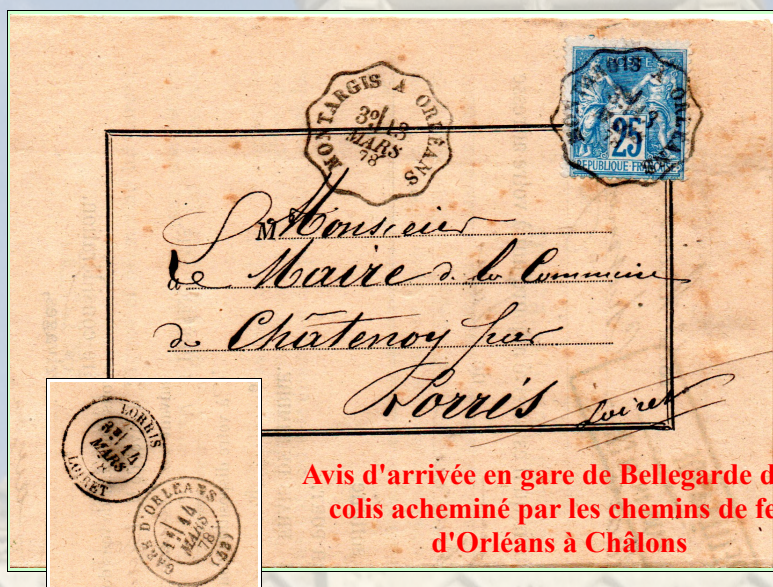 MONTARGIS A ORLÉANS
3E/ 13
MARS
78
25
REPUBLIQUE FRANC
M Monsieur
Le Maire de la Commune
de Châtenoy par
Lorris Loiret
LORRIS
14
MARS
LOIRET
GARE D'ORLEANS
14
MARS
78
(43)
Avis d'arrivée en gare de Bellegarde d
colis acheminé par les chemins de fe
d'Orléans à Châlons